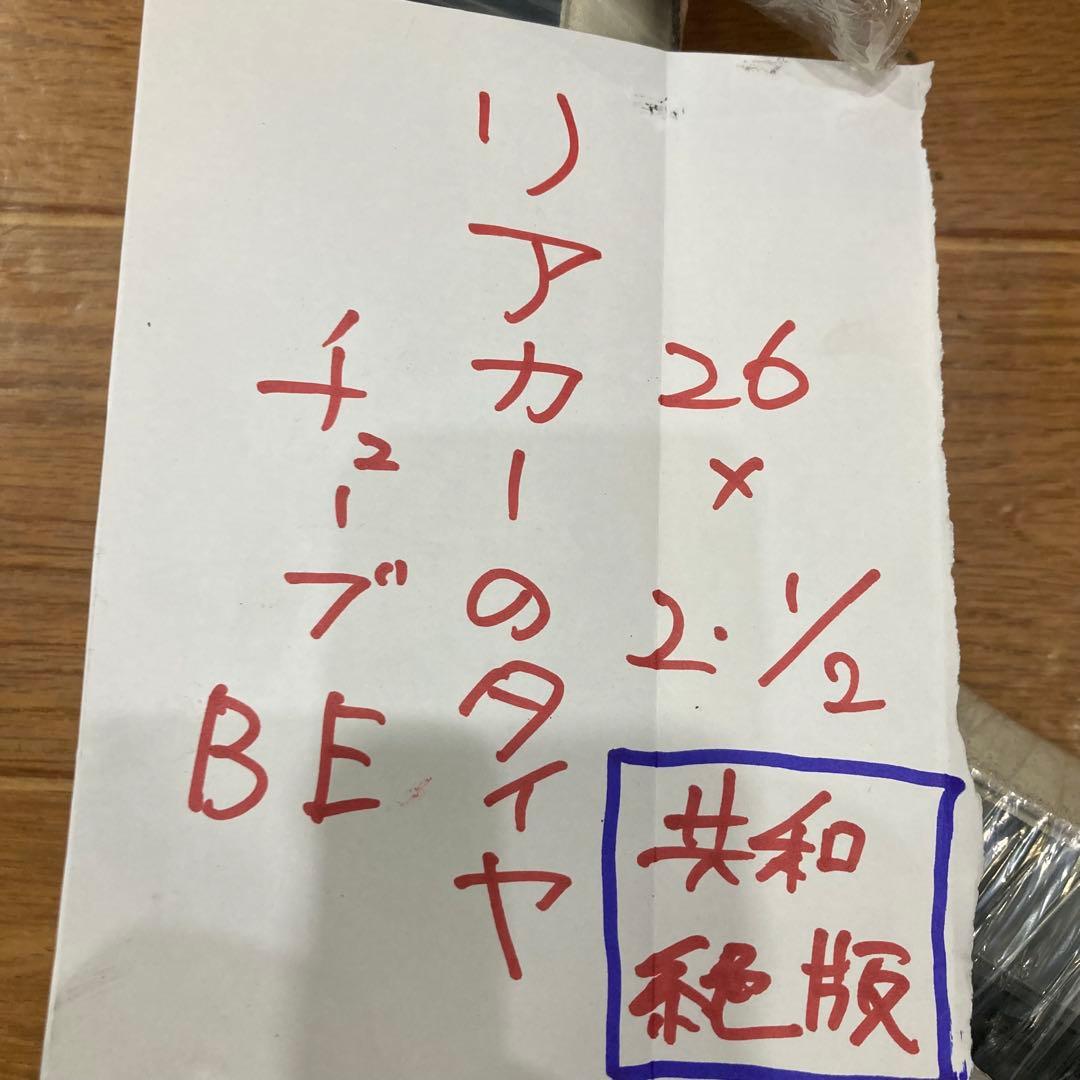 26
×
2・1/2
共和
絶版
リアカーのタイヤ
チューブ
BE